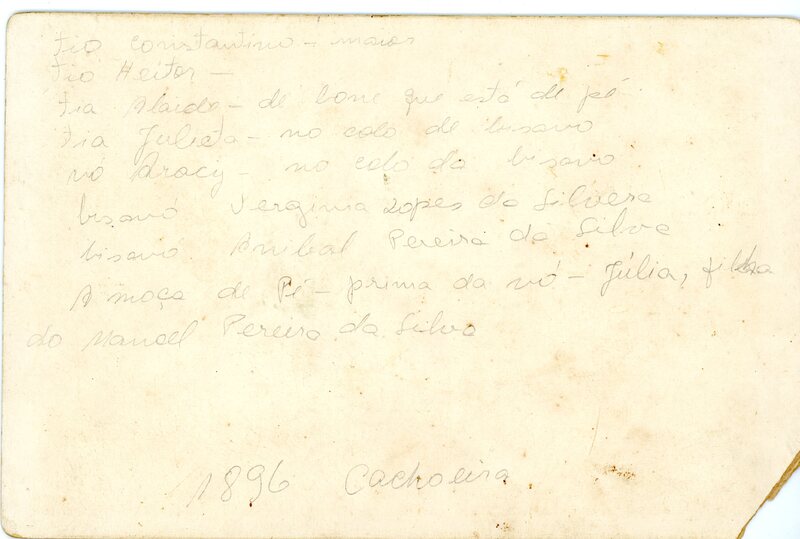 tio Constantino - maior
tio Heitor -
tia Alaide - de que está de pé
tia Julieta - no colo de bisavô
vó Aracy - no colo da bisavó
bisavó Verginia Lopes da Silvera
bisavô Anibal Pereira da Silva
A moça de Pé - prima da vó - Júlia, filha
do Manoel Pereira da Silva
1896 Cachoeira